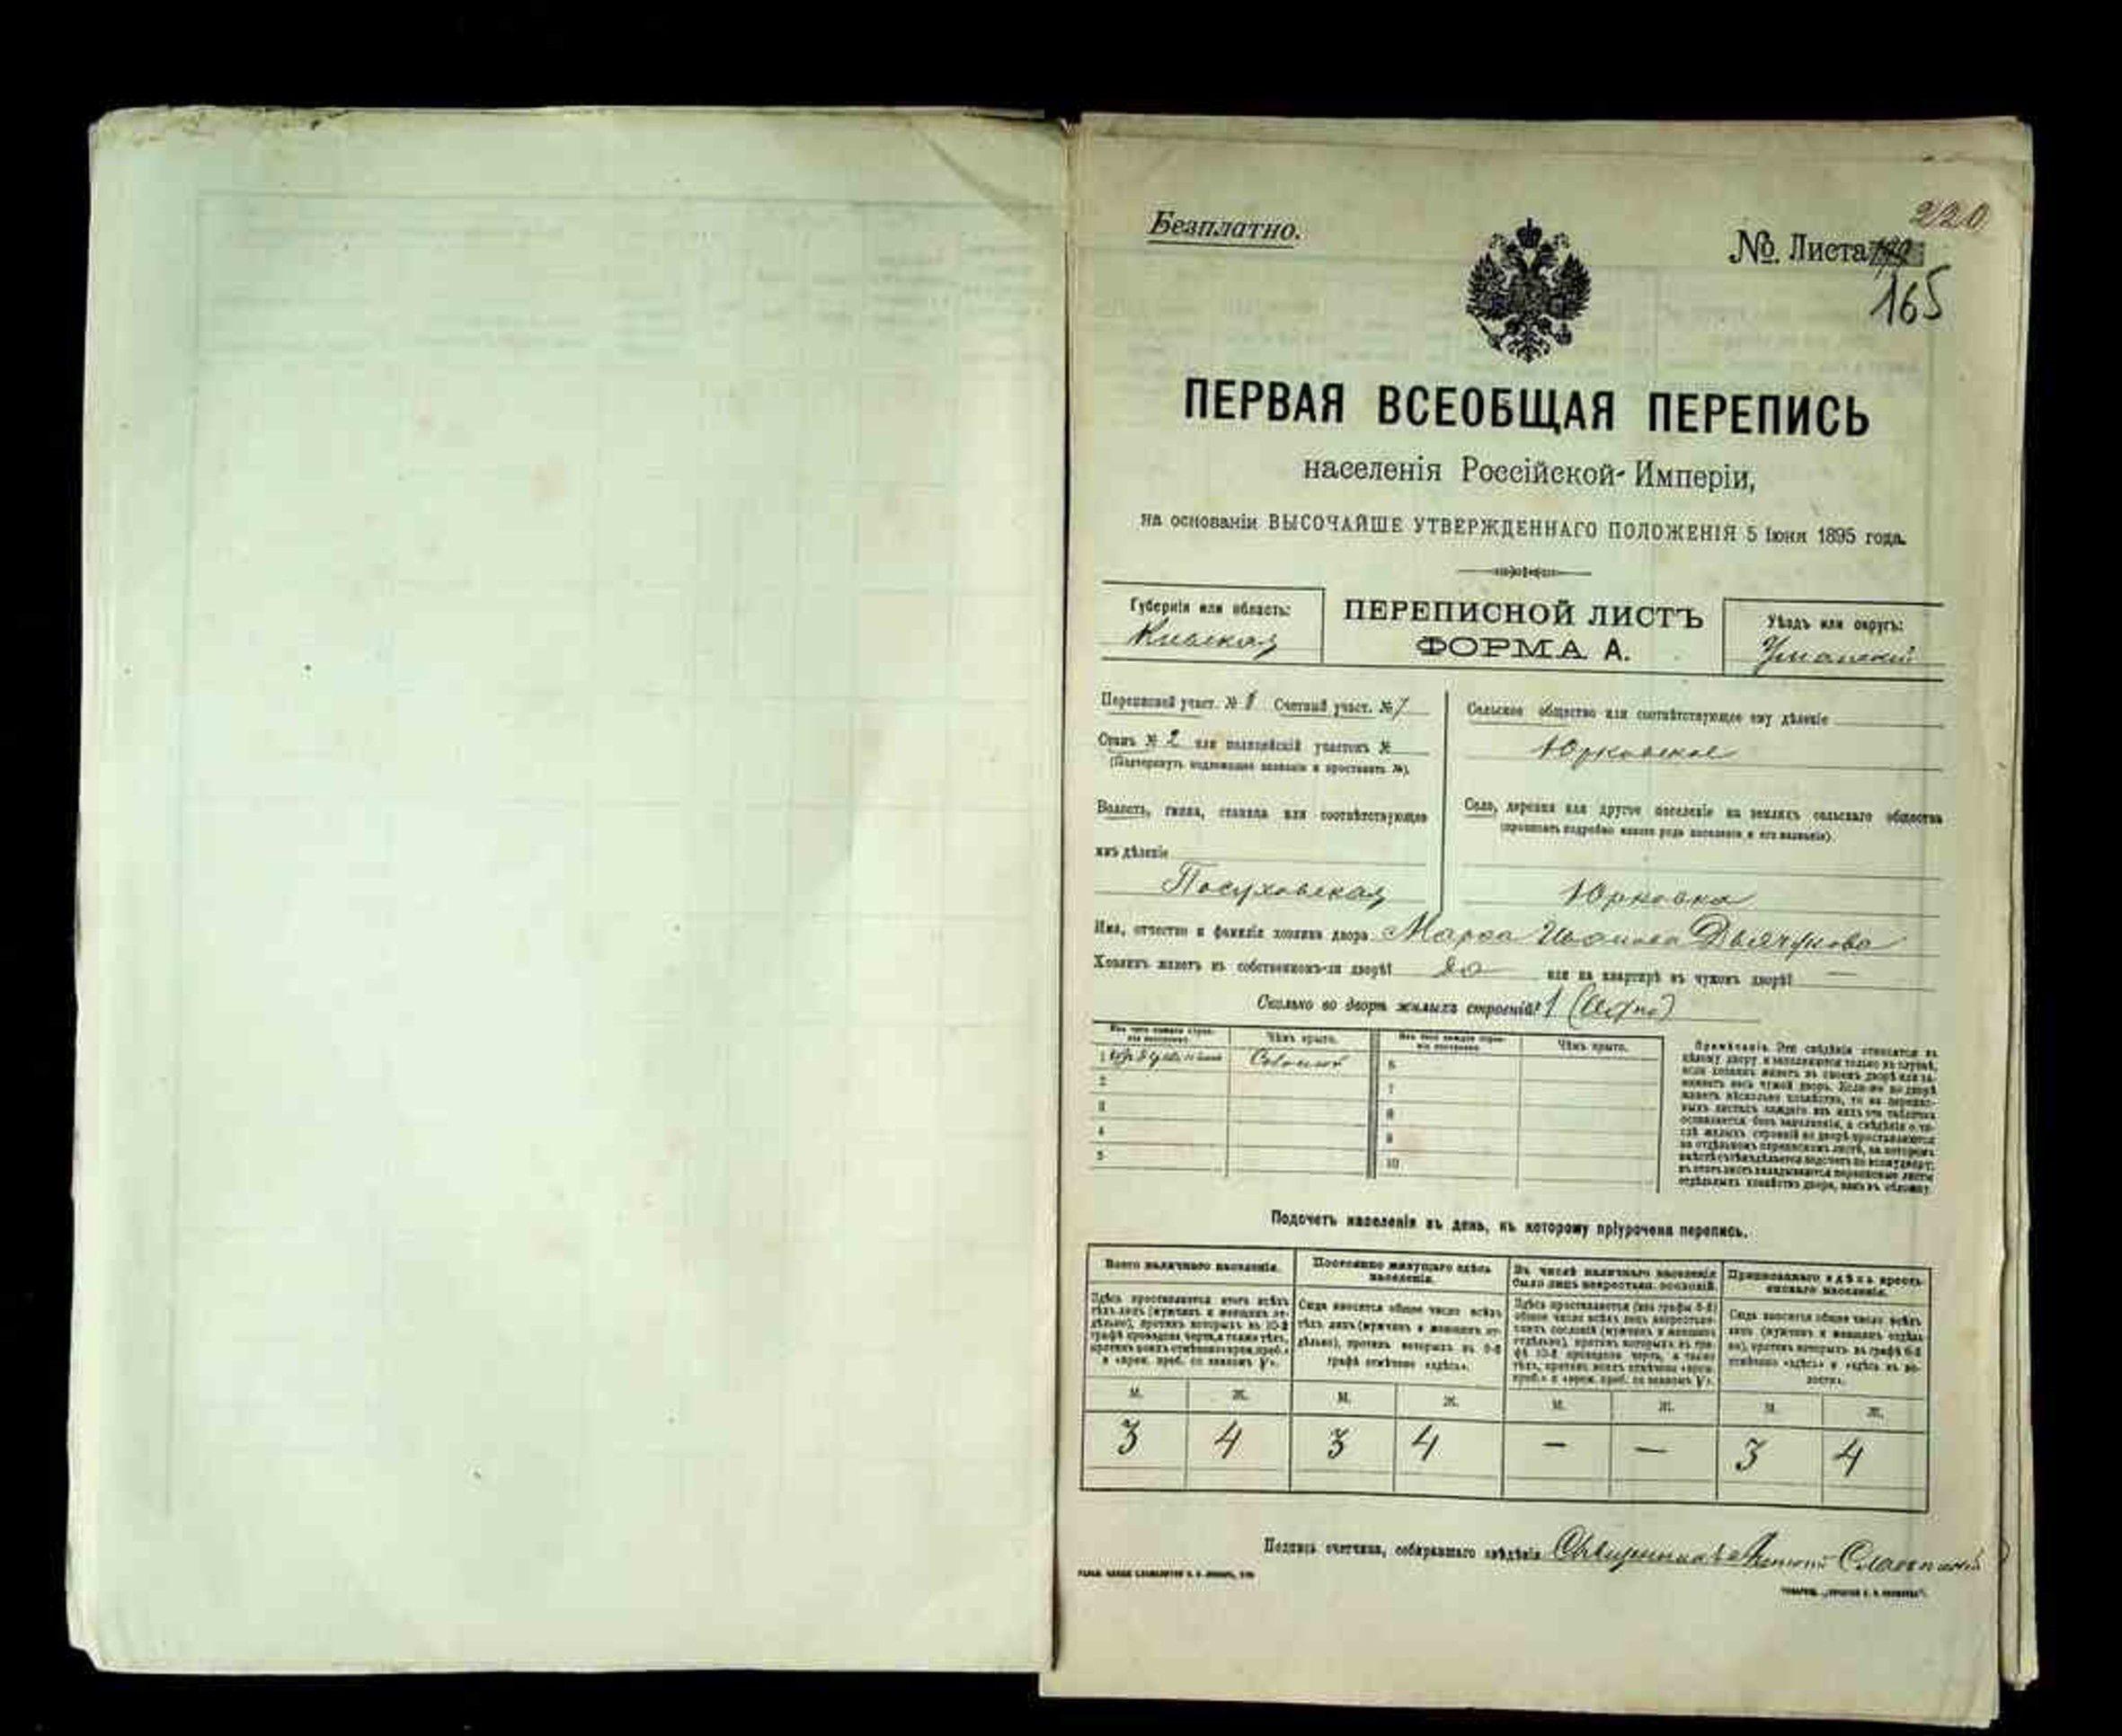 220
Безплатно.
№. Листа
165
ПЕРВАЯ ВСЕОБЩАЯ ПЕРЕПИСЬ
населенія Россійской Имперіи,
на основаніи ВЫСОЧАЙШЕ УТВЕРЖДЕННАГО ПОЛОЖЕНІЯ 5 Іюня 1895 года.
Губернія или область:
Кіевская
ПЕРЕПИСНОЙ ЛИСТЪ
ФОРМА А.
Уѣздъ или округъ:
Уманскій
Переписной участ. № 8 Счетный участ. № 7
Станъ № 2 или полицейскій участокъ №
(Подчеркнуть надлежащее названіе и проставить №).
Волость, гмина, станица или соотвѣтствующее
имъ дѣленіе
Посуховская
Сельское общество или соотвѣтствующее ему дѣленіе
Юрковское
Село, деревня или другое поселеніе на земляхъ сельскаго общества
(прописать подробно какого рода поселеніе и его названіе).
Юрковка
Имя, отчество и фамилія хозяина двора Марфа Иванова Дьячукова
Хозяинъ живетъ въ собственномъ-ли дворѣ? да или на квартирѣ въ чужомъ дворѣ? —
Сколько во дворѣ жилыхъ строеній? 1 (Одно)
Изъ чего каждое строеніе построено.
Чѣмъ крыто.
Изъ чего каждое строеніе построено.
Чѣмъ крыто.
1 Соломой
6
2
7
3
8
4
9
5
10
Примѣчаніе. Эти свѣдѣнія относятся къ
цѣлому двору и заполняются только въ случаѣ,
если хозяинъ живетъ въ своемъ дворѣ или за-
нимаетъ весь чужой дворъ. Если-же во дворѣ
живетъ нѣсколько хозяйствъ, то на перепис-
ныхъ листахъ каждаго изъ нихъ эта табличка
оставляется безъ заполненія, а свѣдѣнія о чи-
слѣ жилыхъ строеній во дворѣ проставляются
на отдѣльномъ переписномъ листѣ, на которомъ
вмѣстѣ съ тѣмъ дѣлается подсчетъ по всему двору;
въ этотъ листъ вкладываются переписные листы
отдѣльныхъ хозяйствъ двора, какъ въ обложку.
Подсчетъ населенія въ день, къ которому пріурочена перепись.
Всего наличнаго населенія.
Здѣсь проставляется итогъ всѣхъ
тѣхъ лицъ (мужчинъ и женщинъ от-
дѣльно), противъ которыхъ въ 10-й
графѣ проведена черта, а также тѣхъ,
противъ коихъ отмѣчено «врем. преб.»
и «врем. преб. со знакомъ V».
Постоянно живущаго здѣсь
населенія.
Сюда вносится общее число всѣхъ
тѣхъ лицъ (мужчинъ и женщинъ от-
дѣльно), противъ которыхъ въ 9-й
графѣ отмѣчено «здѣсь».
Въ числѣ наличнаго населенія
было лицъ некрестьян. сословій.
Здѣсь проставляется (изъ графы 6-й)
общее число всѣхъ лицъ некрестьян-
скихъ сословій (мужчинъ и женщинъ
отдѣльно), противъ которыхъ въ гра-
фѣ 10-й проведена черта, а также
тѣхъ, противъ коихъ отмѣчено «врем.
преб.» и «врем. преб. со знакомъ V».
Приписаннаго здѣсь кресть-
янскаго населенія.
Сюда вносится общее число всѣхъ
лицъ (мужчинъ и женщинъ отдѣль-
но), противъ которыхъ въ графѣ 8-й
отмѣчено «здѣсь» и «здѣсь въ во-
лости».
М. Ж. М. Ж. М. Ж. М. Ж.
3 4 3 4 — — 3 4
Подпись счетчика, собиравшаго свѣдѣнія Священникъ